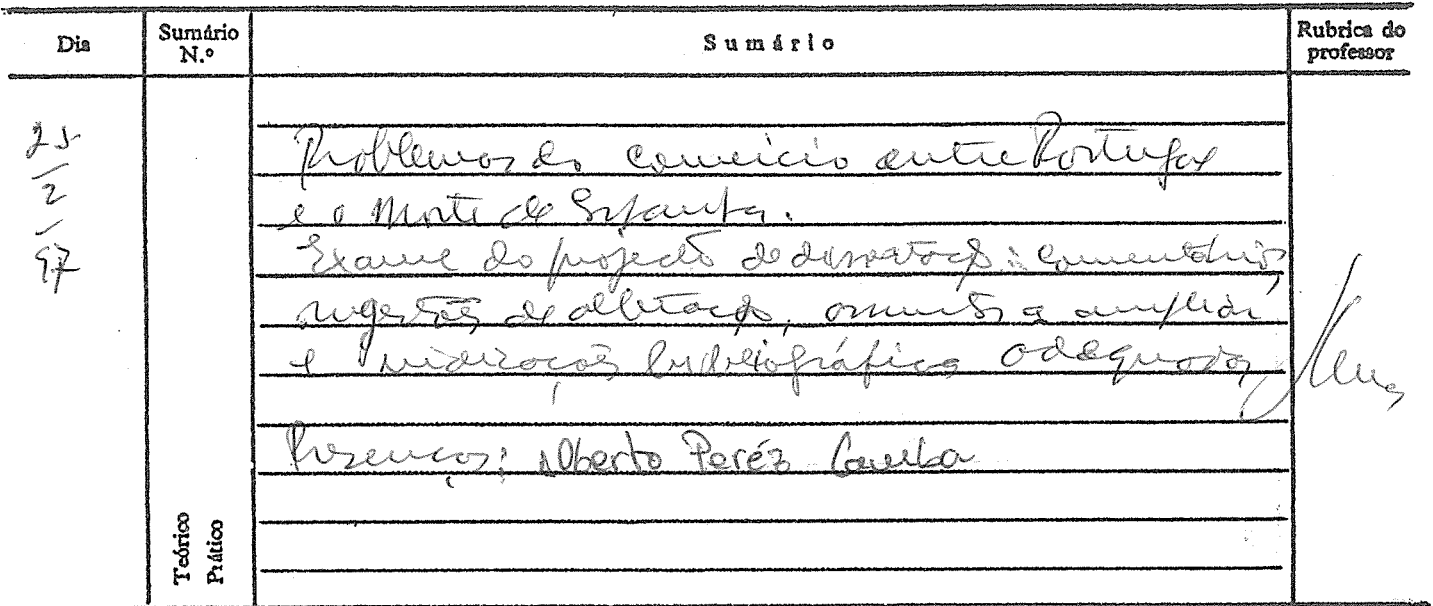 Dia
Sumário N.º
Sumário
Rubrica do professor
25/2/97
Problemas do comércio entre Portugal
e o Norte de Espanha.
Exame do projecto de dissertação: comentários,
sugestões de alteração, assuntos a ampliar
e indicações bibliográficas adequadas
Presenças: Alberto Peréz
Teórico
Prático